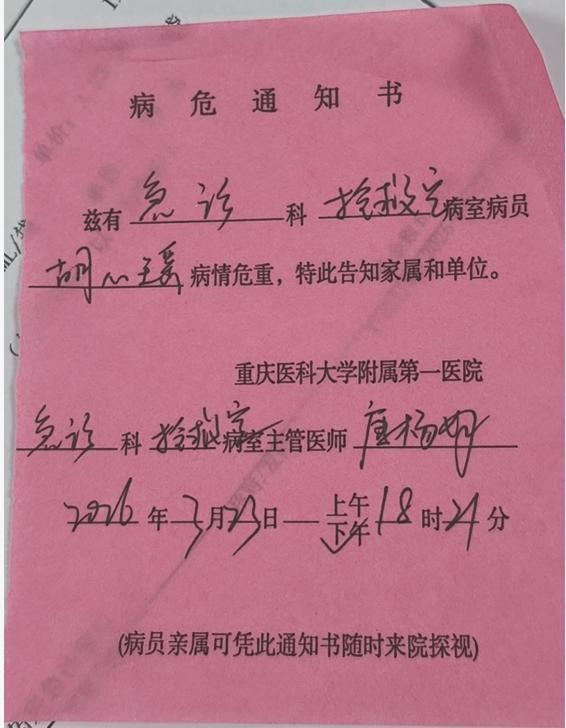 病危通知书
兹有 急诊 科 抢救室 病室病员
胡心瑶 病情危重，特此告知家属和单位。
重庆医科大学附属第一医院
急诊 科 抢救室 病室主管医师
2026 年 3 月 23 日 — 上午
下午 18 时 21 分
(病员亲属可凭此通知书随时来院探视)